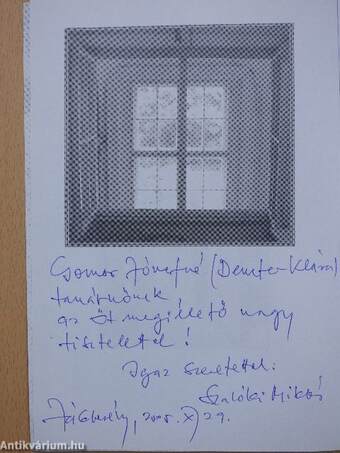 Csomor Józsefné (Demeter Klára)
tanárnőnek
az őt megillető nagy
tisztelettel!
Igaz szeretettel:
Szalóki Miklós
Jászberény, 2005. X. 29.
Antikvárium.hu